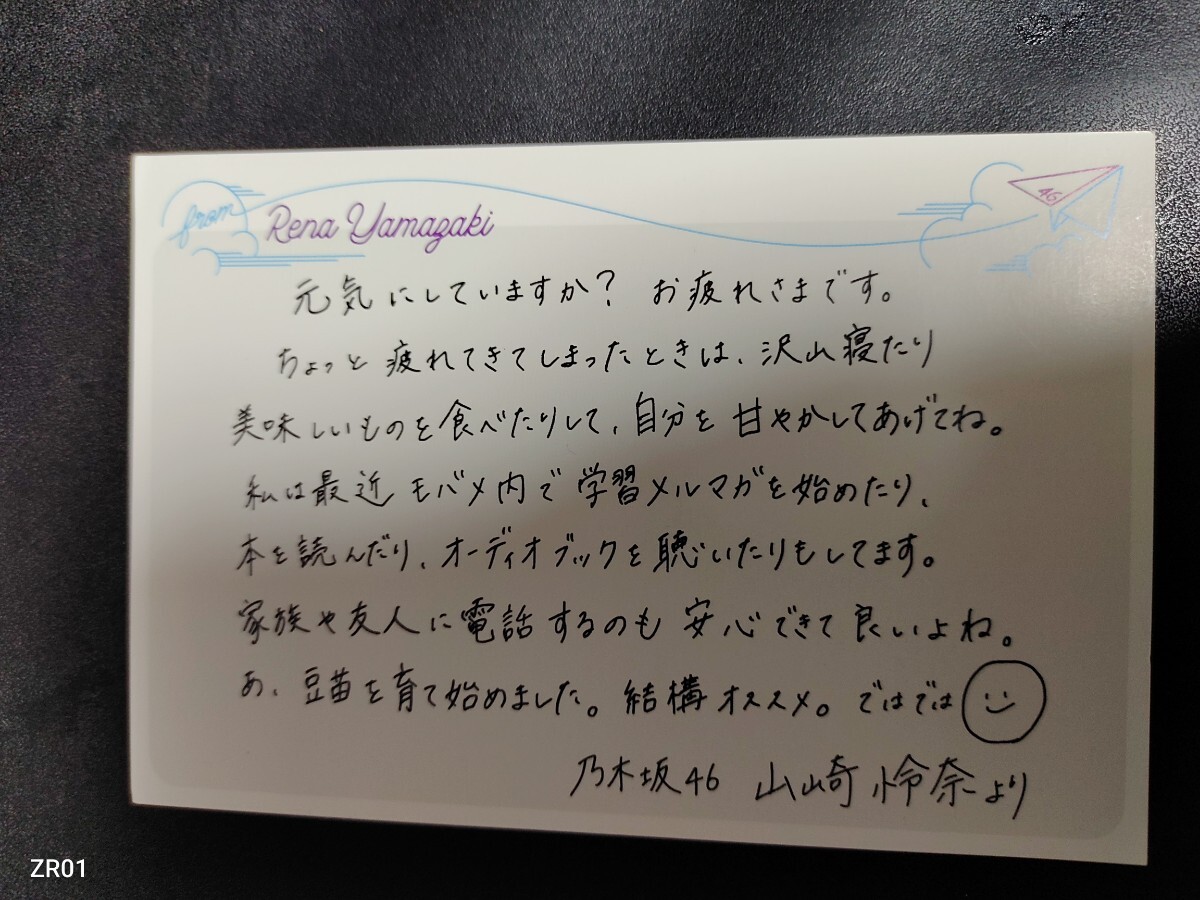 from Rena Yamazaki
46
元気にしていますか? お疲れさまです。
ちょっと疲れてきてしまったときは、沢山寝たり
美味しいものを食べたりして、自分を甘やかしてあげてね。
私は最近モバメ内で学習メルマガを始めたり、
本を読んだり、オーディオブックを聴いたりもしてます。
家族や友人に電話するのも安心できて良いよね。
あ、豆苗を育て始めました。結構オススメ。ではでは
乃木坂46 山崎怜奈より
ZR01